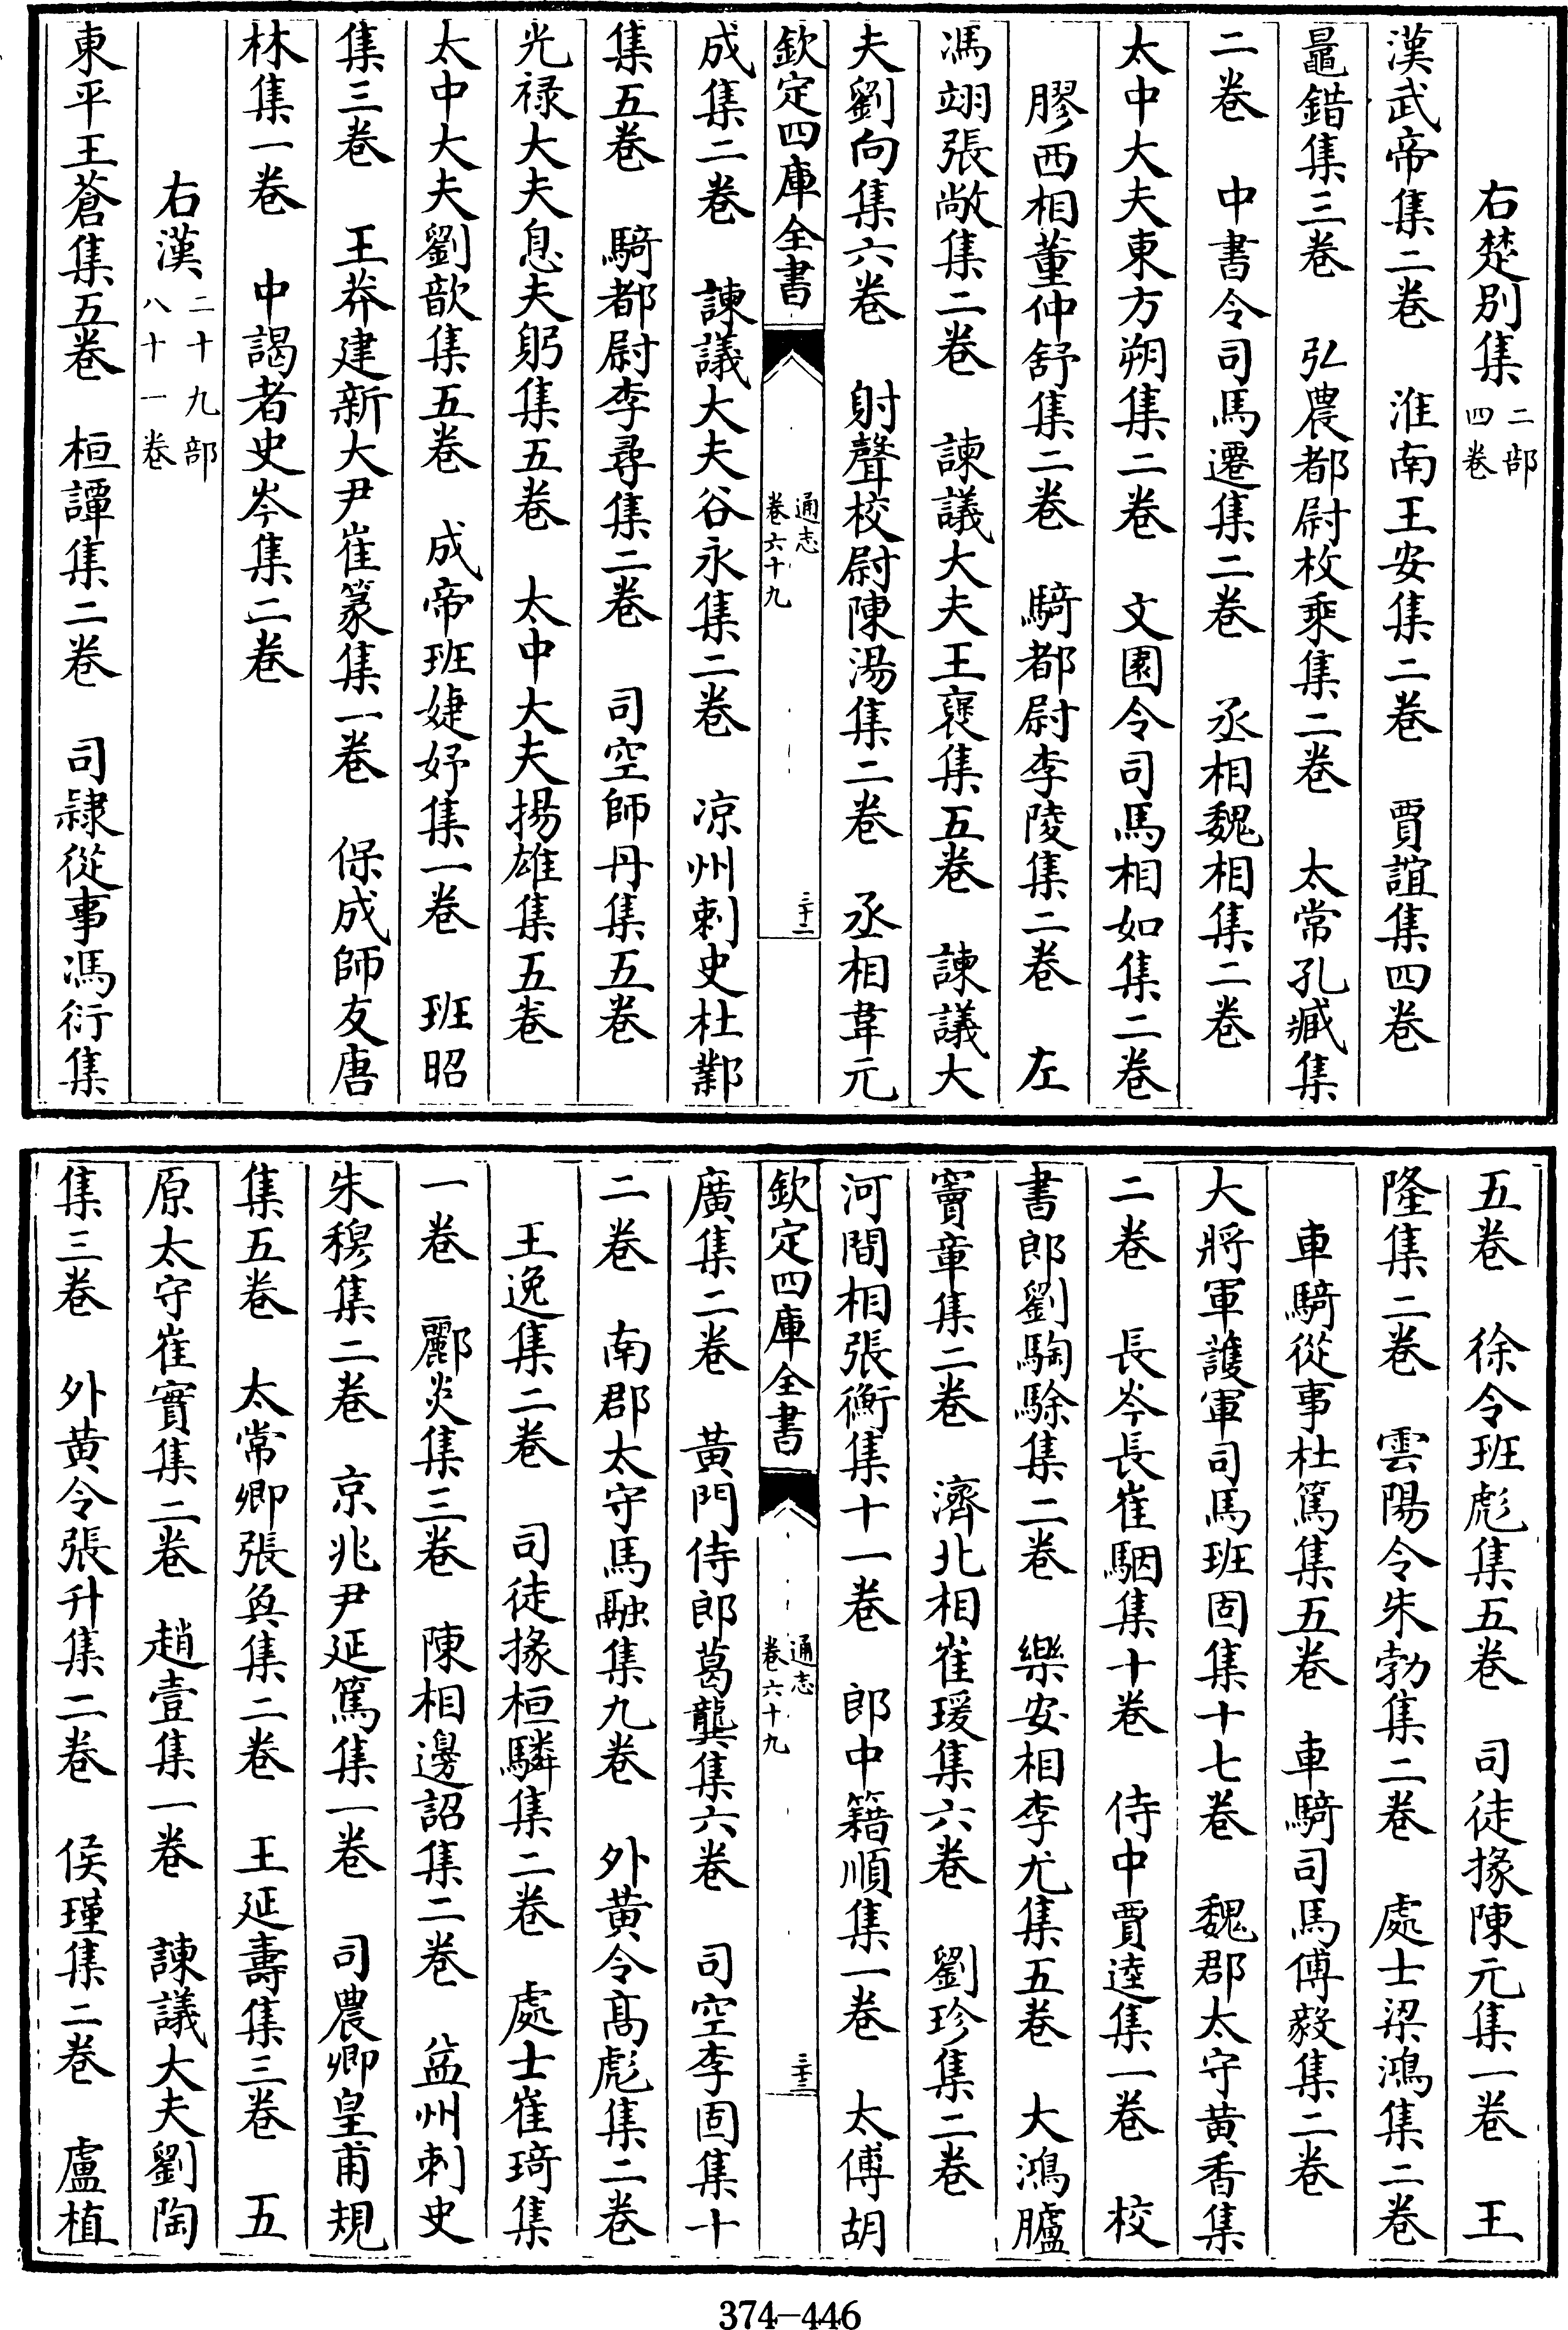 右楚別集二部四卷
漢武帝集二卷　淮南王安集二卷　賈誼集四卷
鼂錯集三卷　弘農都尉枚乘集二卷　太常孔臧集
二卷　中書令司馬遷集二卷　丞相魏相集二卷
太中大夫東方朔集二卷　文園令司馬相如集二卷
膠西相董仲舒集二卷　騎都尉李陵集二卷　左
馮翊張敞集二卷　諫議大夫王襃集五卷　諫議大
夫劉向集六卷　射聲校尉陳湯集二卷　丞相韋元
欽定四庫全書　通志卷六十九　三十二
成集二卷　諫議大夫谷永集二卷　凉州刺史杜鄴
集五卷　騎都尉李尋集二卷　司空師丹集五卷
光禄大夫息夫躬集五卷　太中大夫揚雄集五卷
太中大夫劉歆集五卷　成帝班婕妤集一卷　班昭
集三卷　王莽建新大尹崔篆集一卷　保成師友唐
林集一卷　中謁者史岑集二卷
右漢二十九部八十一卷
東平王蒼集五卷　桓譚集二卷　司隸從事馮衍集
五卷　徐令班彪集五卷　司徒掾陳元集一卷　王
隆集二卷　雲陽令朱勃集二卷　處士梁鴻集二卷
車騎從事杜篤集五卷　車騎司馬傅毅集二卷
大將軍護軍司馬班固集十七卷　魏郡太守黄香集
二卷　長岑長崔駰集十卷　侍中賈逵集一卷　校
書郎劉騊駼集二卷　樂安相李尤集五卷　大鴻臚
竇章集二卷　濟北相崔瑗集六卷　劉珍集二卷
河間相張衡集十一卷　郎中籍順集一卷　太傅胡
欽定四庫全書　通志卷六十九　三十三
廣集二卷　黃門侍郎葛龔集六卷　司空李固集十
二卷　南郡太守馬融集九卷　外黄令高彪集二卷
王逸集二卷　司徒掾桓驎集二卷　處士崔琦集
一卷　酈炎集三卷　陳相邊詔集二卷　益州刺史
朱穆集二卷　京兆尹延篤集一卷　司農卿皇甫規
集五卷　太常卿張奐集二卷　王延壽集三卷　五
原太守崔寔集二卷　趙壹集一卷　諫議大夫劉陶
集三卷　外黄令張升集二卷　侯瑾集二卷　盧植
374-446